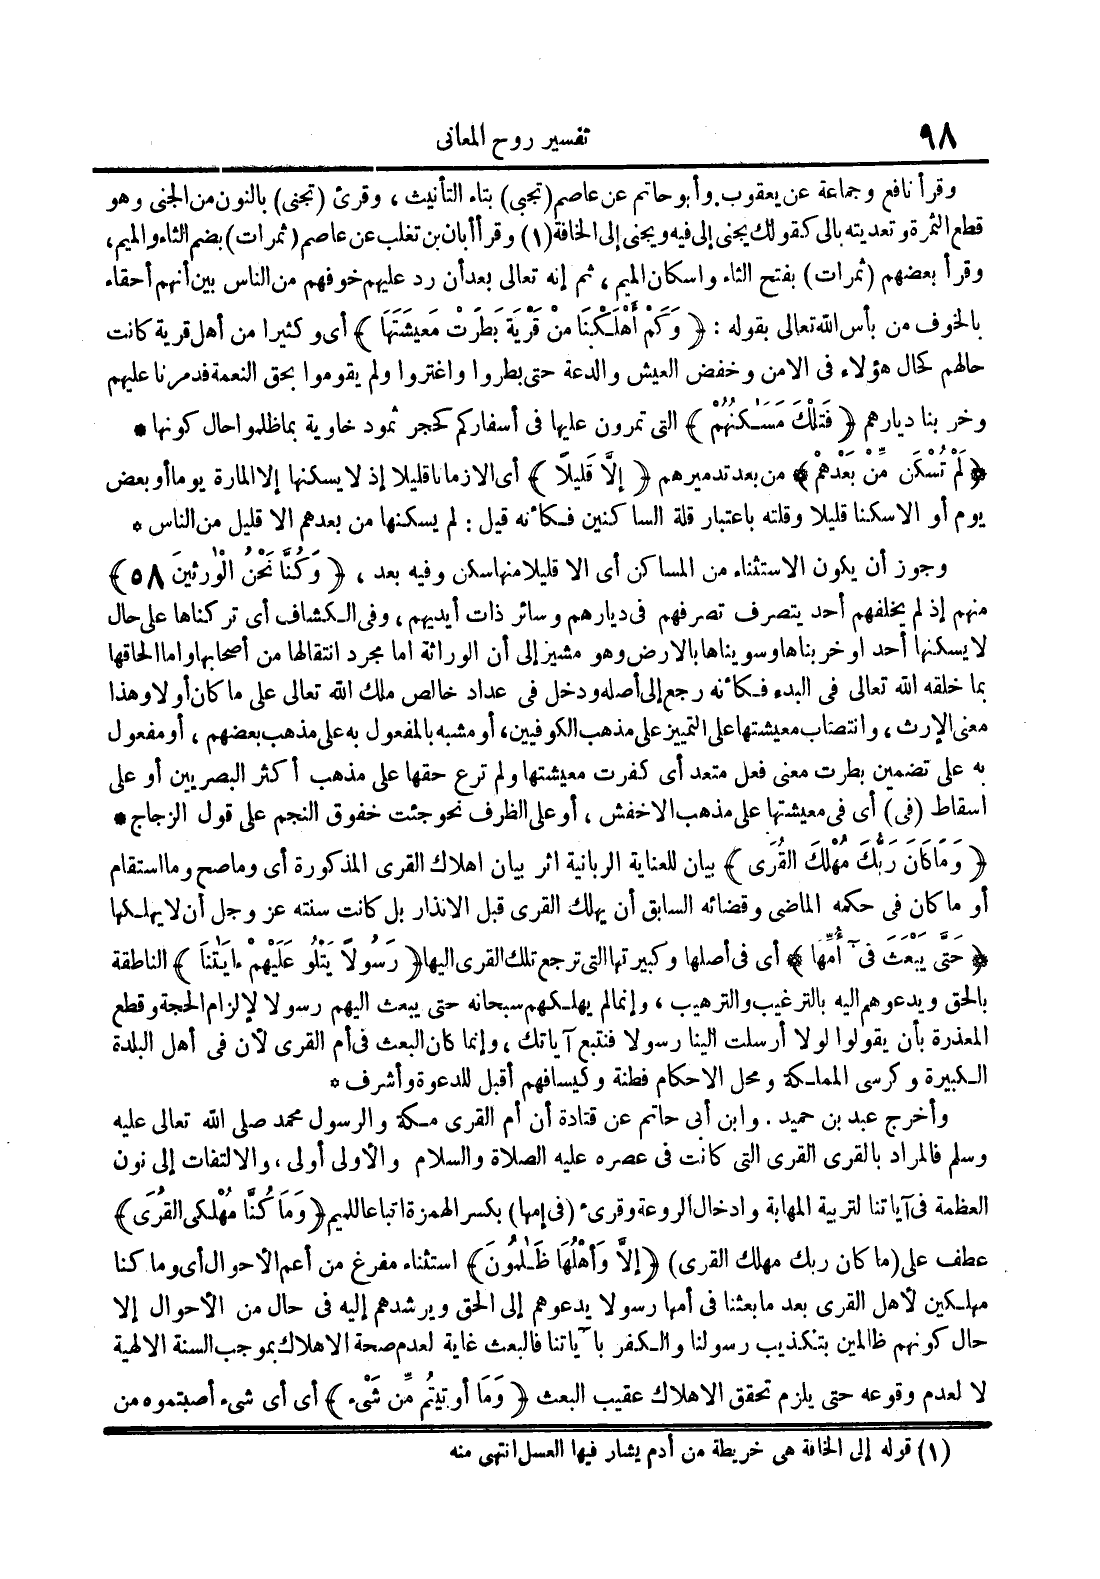 ٩٨
تفسير روح المعانى
وقرأ نافع وجماعة عن يعقوب. وأبو حاتم عن عاصم (تجبى) بتاء التأنيث ، وقرئ (تجنى) بالنون من الجنى وهو
قطع الثمرة وتعديته بالى كقولك يجنى إلى فيه ويجنى إلى الخافة (١) وقرأ أبان بن تغلب عن عاصم (ثمرات) بضم الثاء والميم ،
وقرأ بعضهم (ثمرات) بفتح الثاء واسكان الميم ، ثم إنه تعالى بعد أن رد عليهم خوفهم من الناس بين أنهم أحقاء
بالخوف من بأس الله تعالى بقوله : ﴿ وَكَمْ أَهْلَكْنَا مِنْ قَرْيَةٍ بَطِرَتْ مَعِيشَتَهَا ﴾ أى وكثيرا من أهل قرية كانت
حالهم كحال هؤلاء فى الامن وخفض العيش والدعة حتى بطروا واغتروا ولم يقوموا بحق النعمة فدمرنا عليهم
وخربنا ديارهم ﴿ فَتِلْكَ مَسَـٰكِنُهُمْ ﴾ التى تمرون عليها فى أسفاركم كحجر ثمود خاوية بما ظلموا حال كونها *
﴿ لَمْ تُسْكَن مِّنْ بَعْدِهِمْ ﴾ من بعد تدميرهم ﴿ إِلَّا قَلِيلًا ﴾ أى الا زمانا قليلا إذ لا يسكنها إلا المارة يوما أو بعض
يوم أو الا سكنا قليلا وقلته باعتبار قلة الساكنين فكأنه قيل : لم يسكنها من بعدهم الا قليل من الناس *
وجوز أن يكون الاستثناء من المساكن أى الا قليلا منها سكن وفيه بعد ، ﴿ وَكُنَّا نَحْنُ الْوٰرِثِينَ ٥٨ ﴾
منهم إذ لم يخلفهم أحد يتصرف تصرفهم فى ديارهم وسائر ذات أيديهم ، وفى الكشاف أى تركناها على حال
لا يسكنها أحد او خربناها وسويناها بالارض وهو مشير إلى أن الوراثة اما مجرد انتقالها من أصحابها واما الحاقها
بما خلقه الله تعالى فى البدء فكأنه رجع إلى أصله ودخل فى عداد خالص ملك الله تعالى على ما كان أولا وهذا
معنى الإرث ، وانتصاب معيشتها على التمييز على مذهب الكوفيين ، أو مشبه بالمفعول به على مذهب بعضهم ، أو مفعول
به على تضمين بطرت معنى فعل متعد أى كفرت معيشتها ولم ترع حقها على مذهب أكثر البصريين أو على
اسقاط (فى) أى فى معيشتها على مذهب الاخفش ، أو على الظرف نحو جئت خفوق النجم على قول الزجاج *
﴿ وَمَا كَانَ رَبُّكَ مُهْلِكَ الْقُرَى ﴾ بيان للعناية الربانية اثر بيان اهلاك القرى المذكورة أى وما صح وما استقام
أو ما كان فى حكمه الماضى وقضائه السابق أن يهلك القرى قبل الانذار بل كانت سنته عز وجل أن لا يهلكها
﴿ حَتَّى يَبْعَثَ فِىٓ أُمِّهَا ﴾ أى فى أصلها وكبيرتها التى ترجع تلك القرى اليها ﴿ رَسُولًا يَتْلُو عَلَيْهِمْ ءَايَـٰتِنَا ﴾ الناطقة
بالحق ويدعوهم اليه بالترغيب والترهيب ، وإنما لم يهلكهم سبحانه حتى يبعث اليهم رسولا لإلزام الحجة وقطع
المعذرة بأن يقولوا لولا أرسلت الينا رسولا فنتبع آياتك ، وإنما كان البعث فى أم القرى لأن فى أهل البلدة
الكبيرة وكرسى المملكة ومحل الاحكام فطنة وكيسا فهم أقبل للدعوة وأشرف *
وأخرج عبد بن حميد . وابن أبى حاتم عن قتادة أن أم القرى مكة والرسول محمد صلى الله تعالى عليه
وسلم فالمراد بالقرى القرى التى كانت فى عصره عليه الصلاة والسلام والأولى أولى ، والالتفات إلى نون
العظمة فى آياتنا لتربية المهابة وادخال الروعة وقرىء (فى إمها) بكسر الهمزة اتباعا للميم ﴿ وَمَا كُنَّا مُهْلِكِى الْقُرَى ﴾
عطف على (ما كان ربك مهلك القرى) ﴿ إِلَّا وَأَهْلُهَا ظَـٰلِمُونَ ﴾ استثناء مفرغ من أعم الأحوال أى وما كنا
مهلكين لأهل القرى بعد ما بعثنا فى أمها رسولا يدعوهم إلى الحق ويرشدهم إليه فى حال من الأحوال إلا
حال كونهم ظالمين بتكذيب رسولنا والكفر بآياتنا فالبعث غاية لعدم صحة الاهلاك بموجب السنة الالهية
لا لعدم وقوعه حتى يلزم تحقق الاهلاك عقيب البعث ﴿ وَمَا أُوتِيتُم مِّن شَىْءٍ ﴾ أى أى شىء أصبتموه من
(١) قوله إلى الخافة هى خريطة من أدم يشار فيها العسل انتهى منه